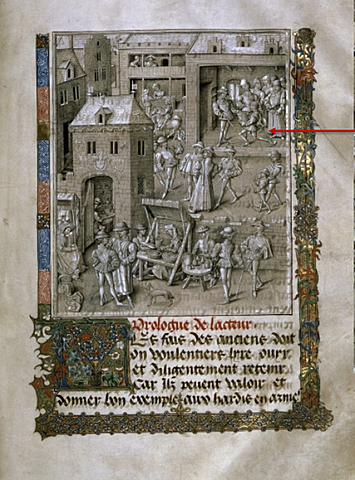 Prologue de lacteur
Les fais des anciens doit
on voulentiers lire ouyr
et diligentement retenir
car ilz peuent valoir et
donner bon exemple aux hardis en arme